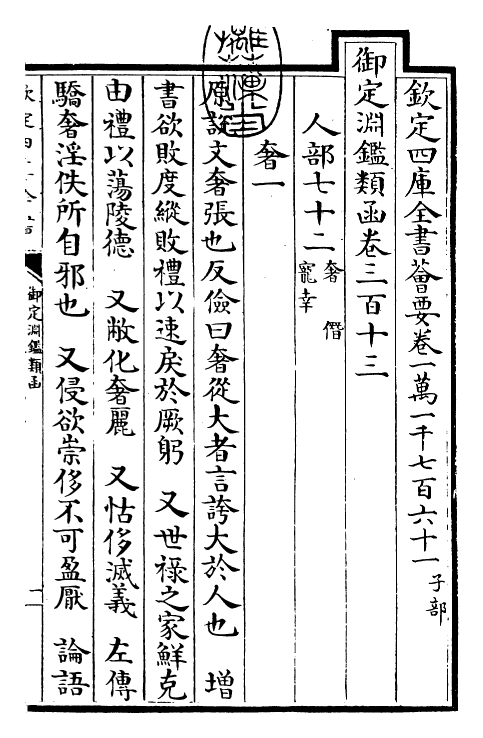 欽定四庫全書薈要卷一萬一千七百六十一 子部
御定淵鑑類函卷三百十三
人部七十二 奢 僭 寵幸
奢一
原説文奢張也反儉曰奢從大者言誇大於人也 増
書欲敗度縱敗禮以速戾於厥躬 又世祿之家鮮克
由禮以蕩陵德 又敝化奢麗 又怙侈滅義 左傳
驕奢淫佚所自邪也 又侵欲崇侈不可盈厭 論語
御定淵鑑類函